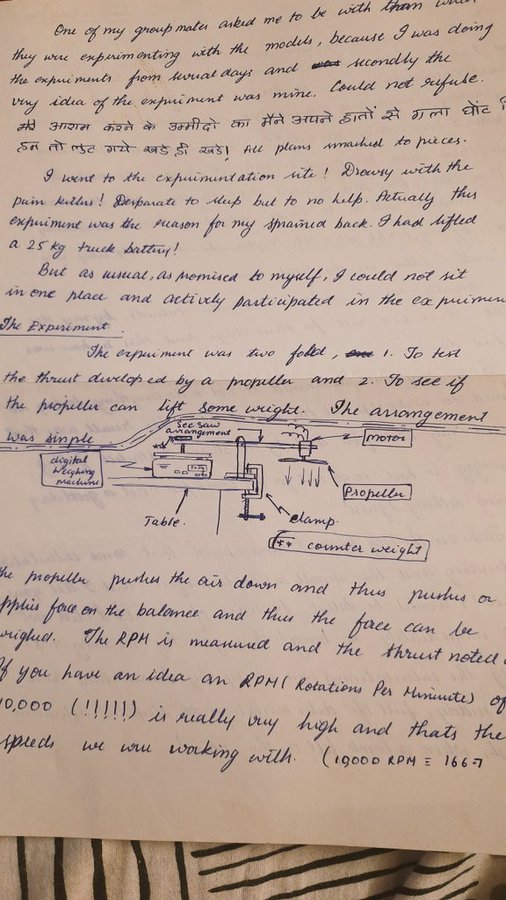 One of my group mates asked me to be with them when
they were experimenting with the models, because I was doing
the experiments from several days and secondly the
very idea of the experiment was mine. Could not refuse.
मेरे आराम करने के उम्मीदो का मैंने अपने हातों से गला घोंट
हम तो लुट गये खडे ही खडे! All plans smashed to pieces.
I went to the experimentation site! Drowsy with the
pain killers! Desparate to sleep but to no help. Actually this
experiment was the reason for my sprained back. I had lifted
a 25 kg truck battery!
But as usual, as promised to myself, I could not sit
in one place and actively participated in the experimen
The Experiment.
The experiment was two fold, 1. To test
the thrust developed by a propeller and 2. To see if
the propeller can lift some weight. The arrangement
was simple
See saw
arrangement
motor
digital
weighing
machine
Propeller
Table.
clamp.
** counter weight
the propeller pushes the air down and thus pushes or
applies force on the balance and thus the force can be
weighed. The RPM is measured and the thrust noted
If you have an idea an RPM (Rotations Per Minuute) of
10,000 (!!!!!!) is really very high and thats the
speeds we were working with. (10,000 RPM = 166.7